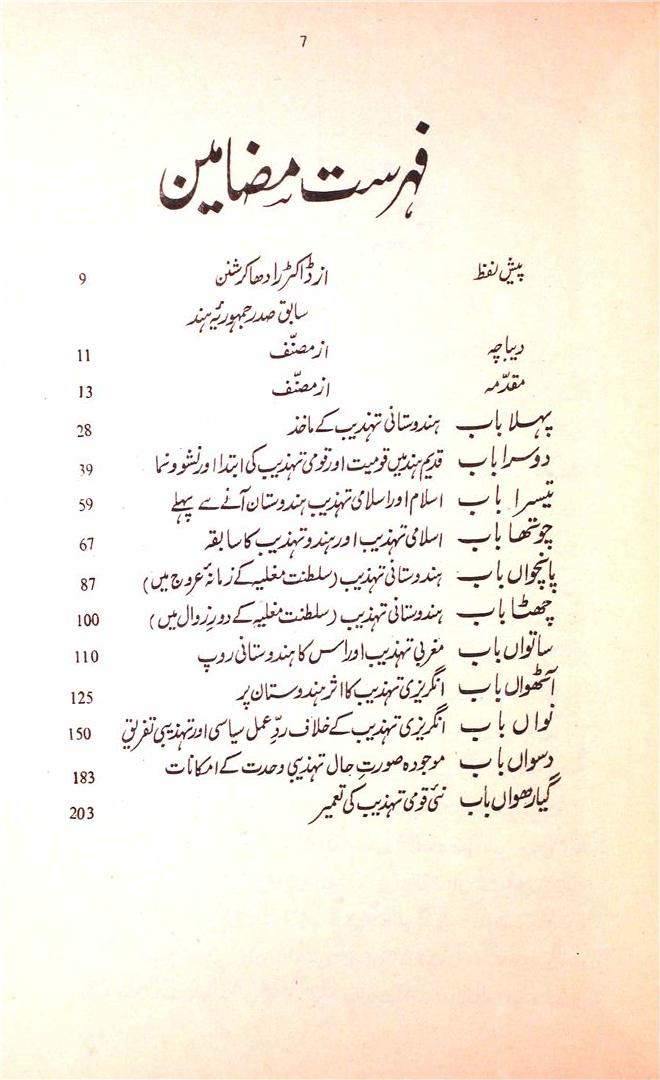 7
فہرست مضامین
پیش لفظ از ڈاکٹر رادھا کرشنن 9
سابق صدر جمہوریۂ ہند
دیباچہ از مصنّف 11
مقدّمہ از مصنّف 13
پہلا باب ہندوستانی تہذیب کے ماخذ 28
دوسرا باب قدیم ہند میں قومیت اور قومی تہذیب کی ابتدا اور نشو و نما 39
تیسرا باب اسلام اور اسلامی تہذیب ہندوستان آنے سے پہلے 59
چوتھا باب اسلامی تہذیب اور ہندو تہذیب کا سابقہ 67
پانچواں باب ہندوستانی تہذیب (سلطنت مغلیہ کے زمانۂ عروج میں) 87
چھٹا باب ہندوستانی تہذیب (سلطنت مغلیہ کے دورِ زوال میں) 100
ساتواں باب مغربی تہذیب اور اس کا ہندوستانی روپ 110
آٹھواں باب انگریزی تہذیب کا اثر ہندوستان پر 125
نواں باب انگریزی تہذیب کے خلاف ردِّ عمل سیاسی اور تہذیبی تفریق 150
دسواں باب موجودہ صورتِ حال تہذیبی وحدت کے امکانات 183
گیارھواں باب نئی قومی تہذیب کی تعمیر 203